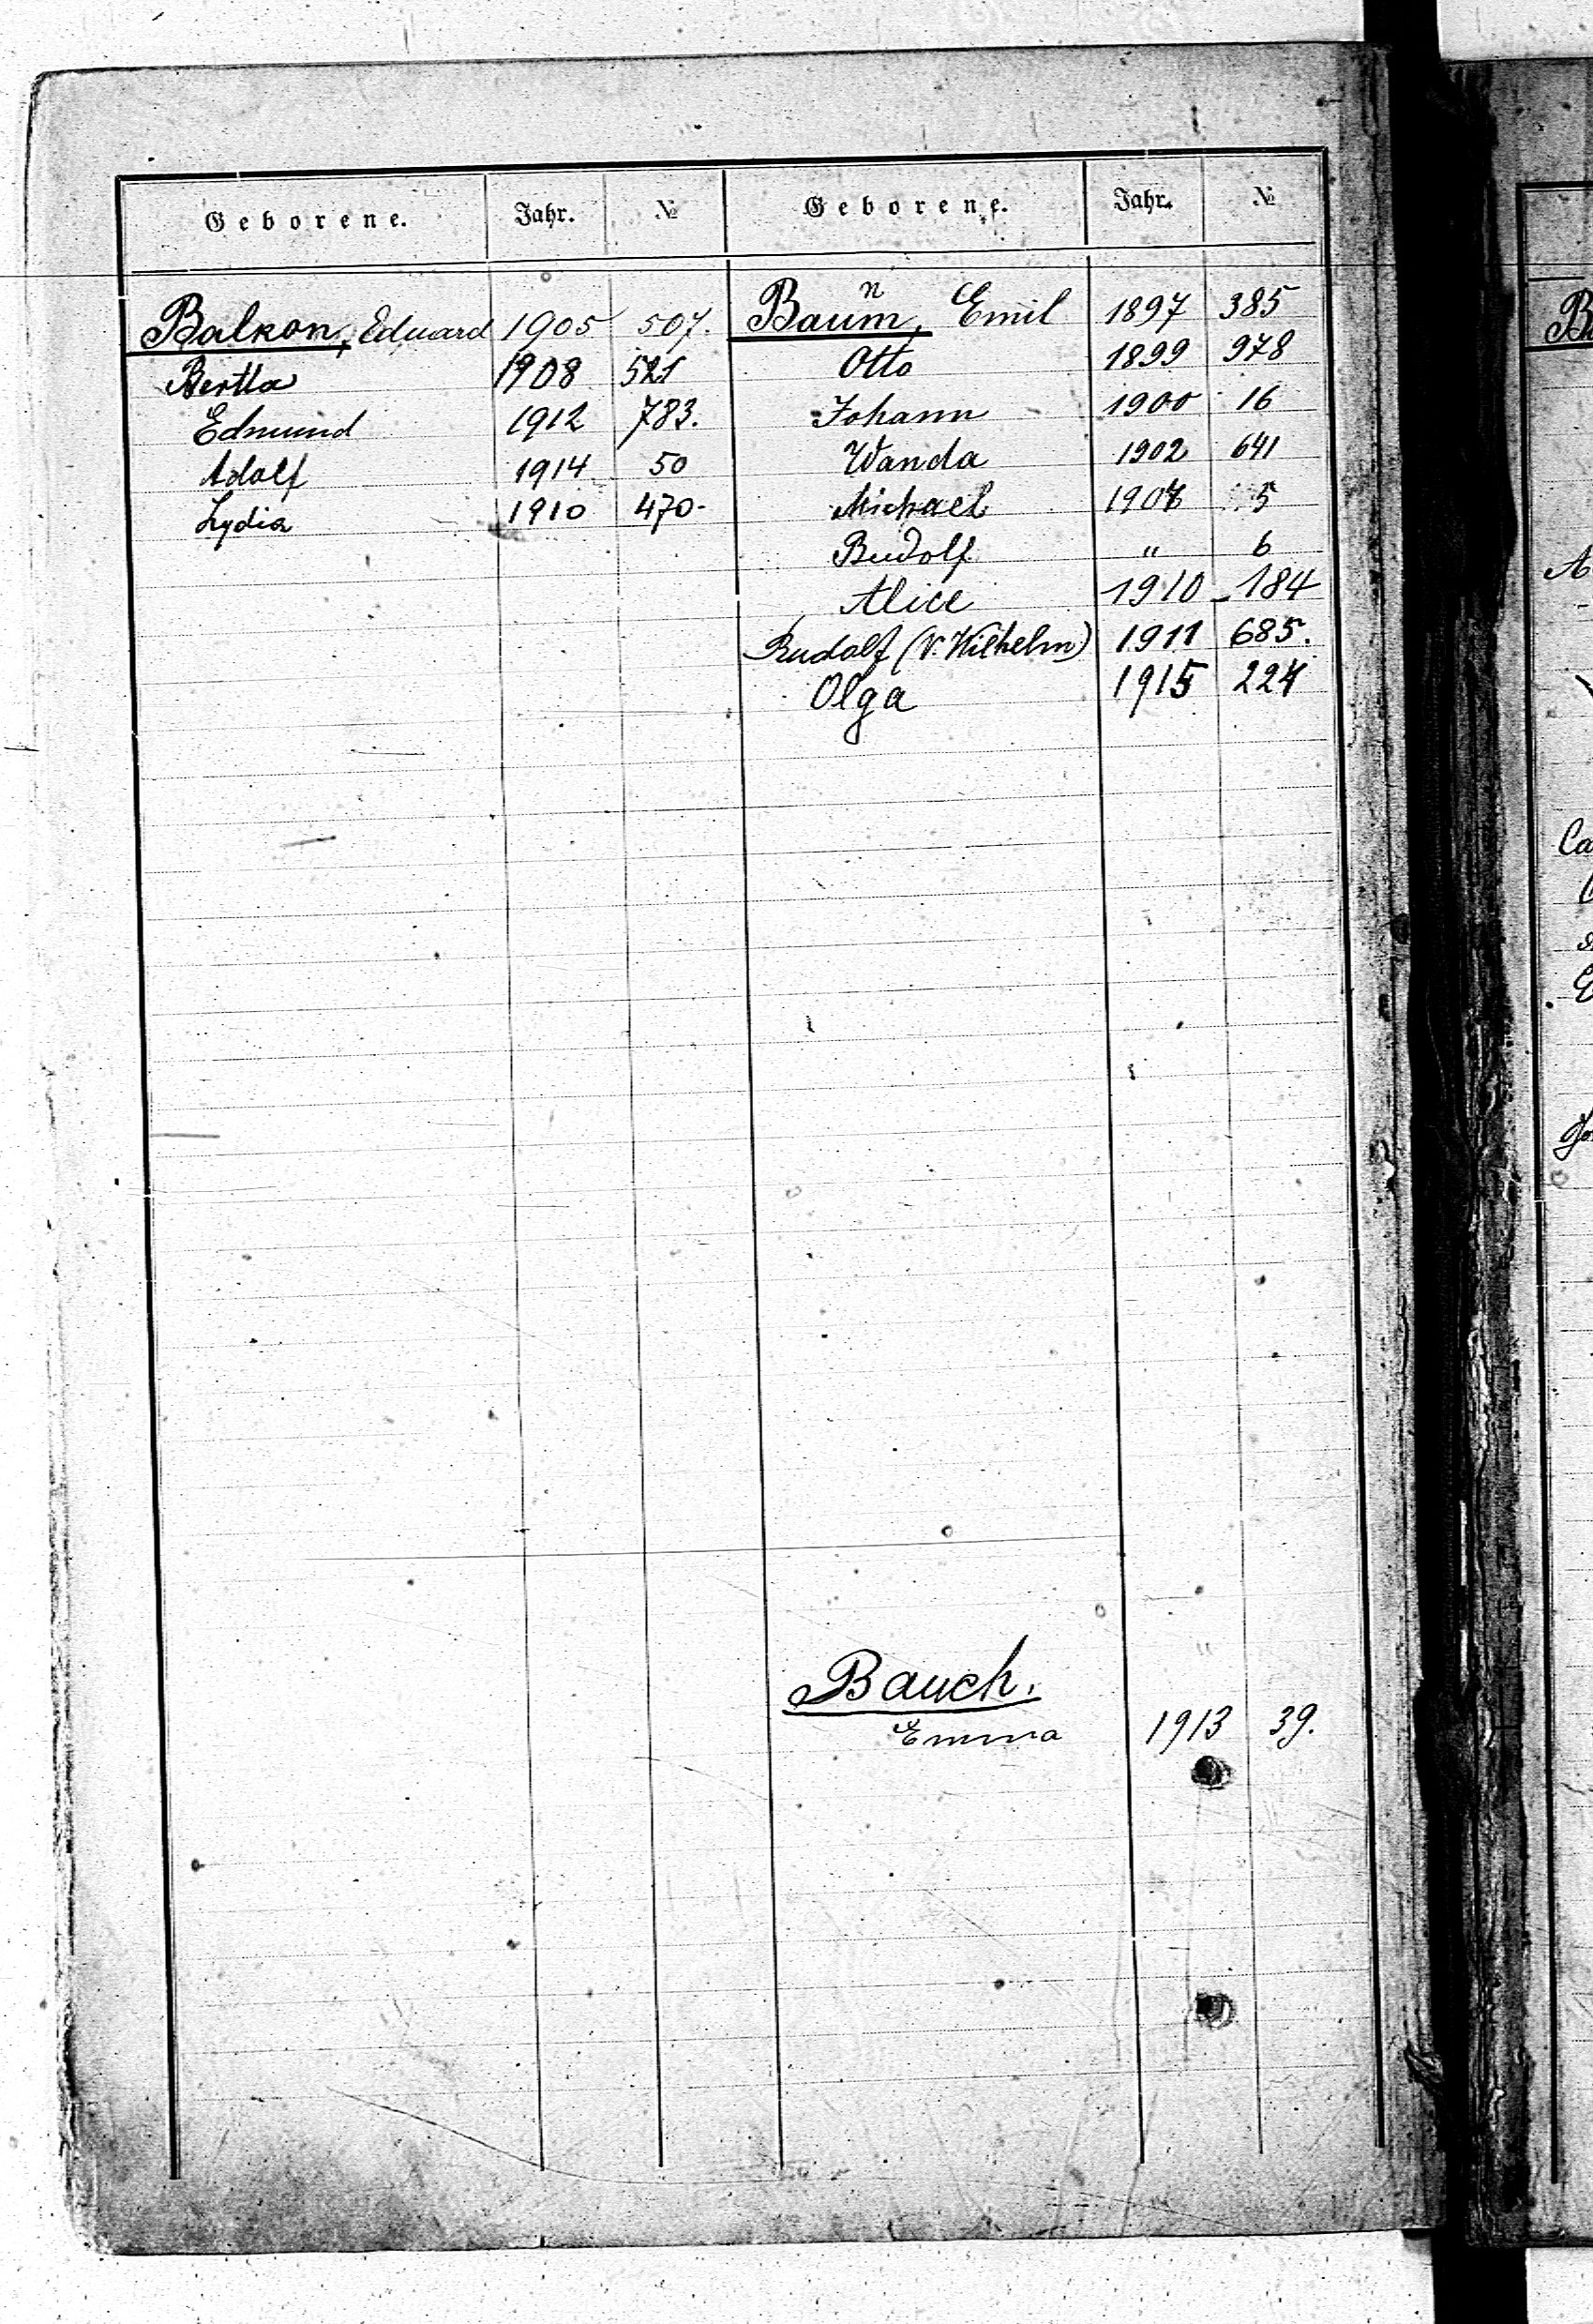 Geborene. Jahr. №
Balkon, Eduard 1905 507.
Bertha 1908 521
Edmund 1912 783.
Adolf 1914 50
Lydia 1910 470-
Geborene. Jahr. №
n
Baum, Emil 1897 385
Otto 1899 978
Johann 1900 16
Wanda 1902 641
Michael 5
Rudolf " 6
Alice 1910 184
Rudolf (v. Wilhelm) 1911 685.
Olga 1915 224
Bauch.
Emma 1913 39.